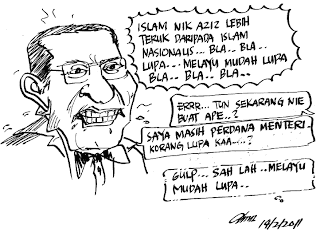 ISLAM NIK AZIZ LEBIH
TERUK DARIPADA ISLAM
NASIONALIS... BLA.. BLA..
LUPA... MELAYU MUDAH LUPA
BLA.. BLA.. BLA..
ERRR... TUN SEKARANG NIE
BUAT APE..?
SAYA MASIH PERDANA MENTERI.
KORANG LUPA KAA....?
GULP... SAH LAH..MELAYU
MUDAH LUPA..
19/2/2011